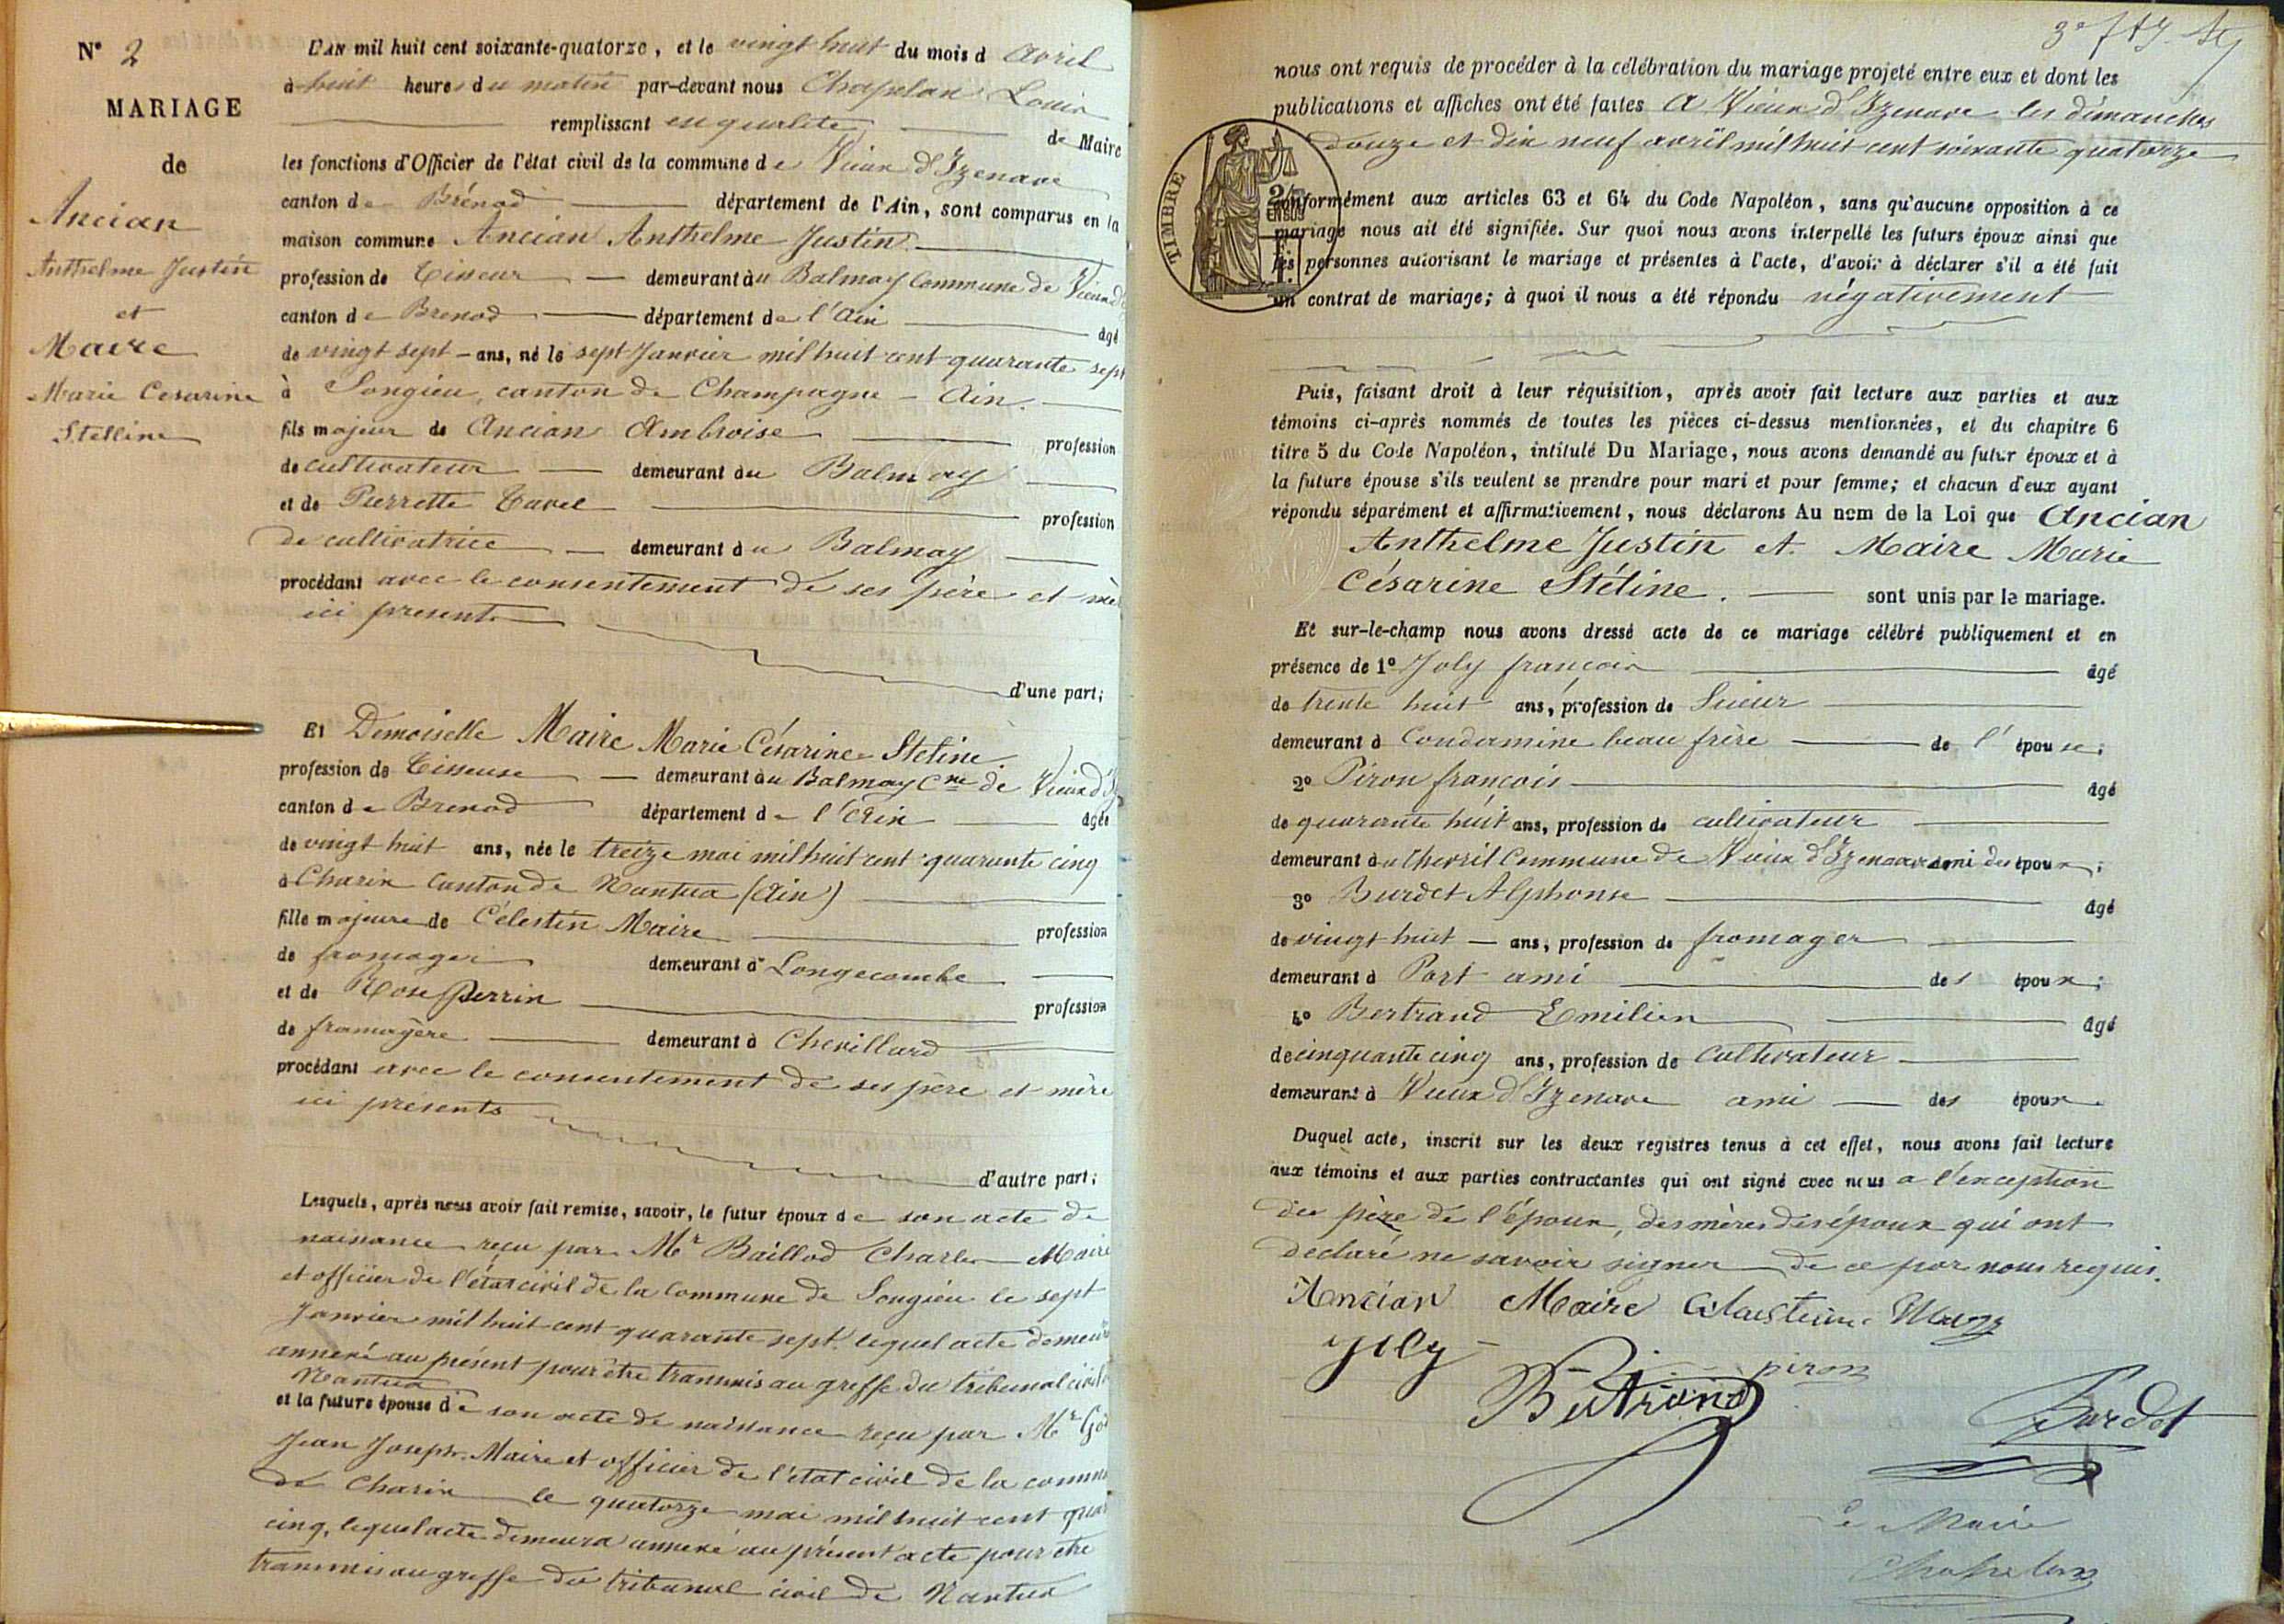 N° 2
MARIAGE
de
Ancian
Anthelme Justin
et
Maire
Marie Cesarine
Stelline
L'AN mil huit cent soixante-quatorze, et le vingt huit du mois d avril
à huit heures du matin par-devant nous Chapelan Louis
remplissant en qualité de Maire
les fonctions d'Officier de l'état civil de la commune de Vieux d'Izenave
canton de Brénod département de l'Ain, sont comparus en la
maison commune Ancian Anthelme Justin
profession de Tisseur demeurant au Balmay Commune de Vieux d'
canton de Brenod département de l'Ain âgé
de vingt sept ans, né le sept Janvier mil huit cent quarante sept
à Songieu, canton de Champagne - Ain.
fils majeur de Ancian Ambroise profession
de cultivateur demeurant au Balmay
et de Pierrette Tavel profession
de cultivatrice demeurant au Balmay
procédant avec le consentement de ses père et mè
ici present
d'une part;
Et Demoiselle Maire Marie Césarine Steline
profession de Tisseuse demeurant au Balmay Cne de Vieux d'Iz
canton de Brenod département de l'Ain âgée
de vingt huit ans, née le treize mai mil huit cent quarante cinq
à Charix canton de Nantua (Ain)
fille majeure de Célestin Maire profession
de fromager demeurant à Longecombe
et de Rose Perrin profession
de fromagère demeurant à Chevillard
procédant avec le consentement de ses père et mère
ici présents
d'autre part;
Lesquels, après nous avoir fait remise, savoir, le futur époux de son acte de
naissance reçu par Mr Baillod Charles Maire
et officier de l'état civil de la Commune de Songieu le sept
Janvier mil huit cent quarante sept, lequel acte demeure
annexé au présent pour être transmis au greffe du tribunal civil
Nantua
et la future épouse de son acte de naissance reçu par Mr
Jean Joseph Maire et officier de l'état civil de la comm
de Charix le quatorze mai mil huit cent quar
cinq, lequel acte demeura annexé au présent acte pour être
transmis au greffe du tribunal civil de Nantua
nous ont requis de procéder à la célébration du mariage projeté entre eux et dont les
publications et affiches ont été faites A Vieux d'Izenave les dimanches
douze et dix neuf avril mil huit cent soixante quatorze
TIMBRE
conformément aux articles 63 et 64 du Code Napoléon, sans qu'aucune opposition à ce
mariage nous ait été signifiée. Sur quoi nous avons interpellé les futurs époux ainsi que
les personnes autorisant le mariage et présentes à l'acte, d'avoir à déclarer s'il a été fait
un contrat de mariage; à quoi il nous a été répondu négativement
Puis, faisant droit à leur réquisition, après avoir fait lecture aux parties et aux
témoins ci-après nommés de toutes les pièces ci-dessus mentionnées, et du chapitre 6
titre 5 du Code Napoléon, intitulé Du Mariage, nous avons demandé au futur époux et à
la future épouse s'ils veulent se prendre pour mari et pour femme; et chacun d'eux ayant
répondu séparément et affirmativement, nous déclarons Au nom de la Loi que Ancian
Anthelme Justin et Maire Marie
Césarine Stéline. sont unis par le mariage.
Et sur-le-champ nous avons dressé acte de ce mariage célébré publiquement et en
présence de 1° Joly françois âgé
de trente huit ans, profession de Sieur
demeurant à Condamine beau frère de l'épouse;
2° Piron françois âgé
de quarante huit ans, profession de cultivateur
demeurant au Chevril Commune de Vieux d'Izenave ami des époux;
3° Burdet Alphonse âgé
de vingt huit ans, profession de fromager
demeurant à Port ami des époux;
4° Bertrand Emilien âgé
de cinquante cinq ans, profession de Cultivateur
demeurant à Vieux d'Izenave ami des époux
Duquel acte, inscrit sur les deux registres tenus à cet effet, nous avons fait lecture
aux témoins et aux parties contractantes qui ont signé avec nous a l'exception
du père de l'époux, des mères des époux qui ont
declaré ne savoir signer de ce par nous requis.
Ancian Maire
Joly piron
Bertrand
Burdet
Le Maire
Chapelan